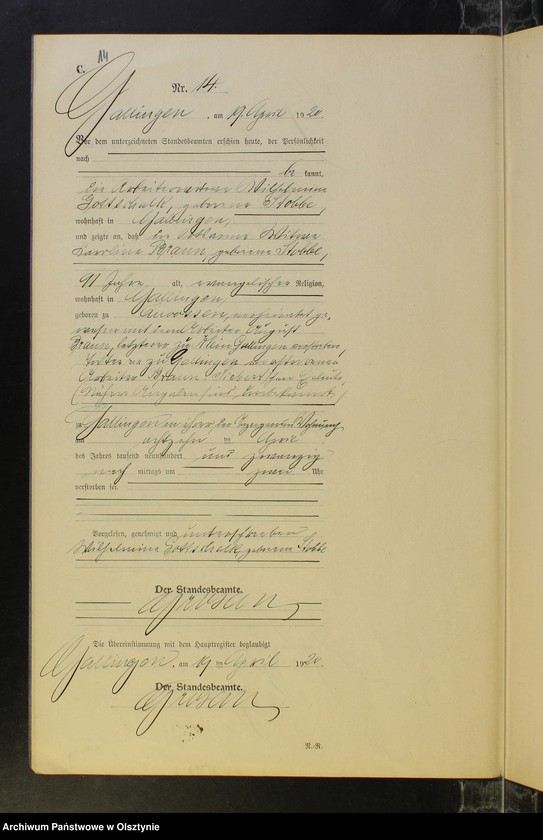 14
C.
Nr. 14.
Gallingen, am 19 April 1920
Vor dem unterzeichneten Standesbeamten erschien heute, der Persönlichkeit
nach
be kannt,
die Arbeiterwitwe Wilhelmine
Gottschalk, geborene Stobbe,
wohnhaft in Gallingen,
und zeigte an, daß die Witwe
Karoline Braun, geborene Stobbe,
91 Jahre alt, evangelischer Religion,
wohnhaft in Gallingen,
geboren zu verheiratet ge
wesen mit dem Arbeiter August
Braun, letzterer zu Klein Gallingen verstorben,
Tochter der zu Gallingen verstorbenen
Arbeiter Eheleute,
(Nähere Angaben sind unbekannt)
zu Gallingen in ihrer Wohnung
am achtzehn ten April
des Jahres tausend neunhundert und zwanzig
nach mittags um zwei Uhr
verstorben sei.
Vorgelesen, genehmigt und unterschrieben
Wilhelmine Gottschalk, geborene Stobbe
Der Standesbeamte.
Die Übereinstimmung mit dem Hauptregister beglaubigt
Gallingen, am 19 ten April 1920.
Der Standesbeamte.
N.-R.
Archiwum Państwowe w Olsztynie